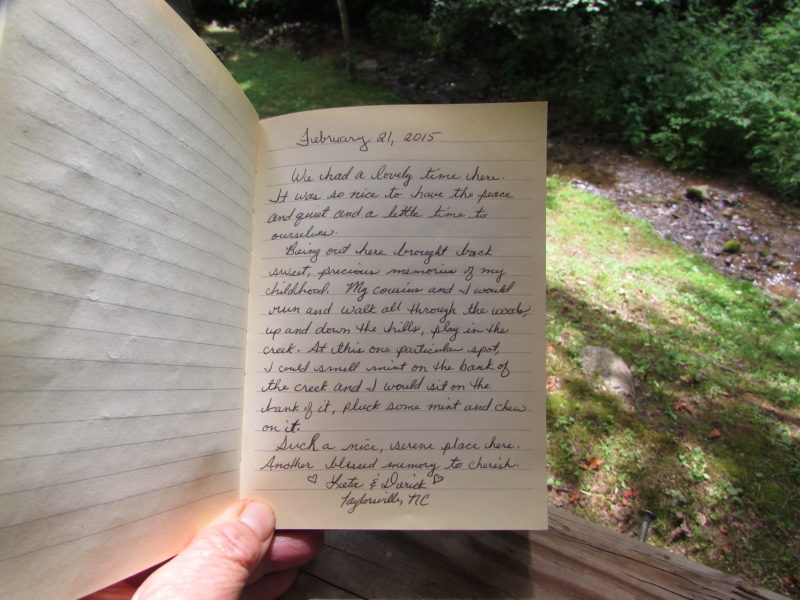 February 21, 2015
We had a lovely time here.
It was so nice to have the peace
and quiet and a little time to
ourselves.
Being out here brought back
sweet, precious memories of my
childhood. My cousins and I would
run and walk all through the woods,
up and down the hills, play in the
creek. At this one particular spot,
I could smell mint on the bank of
the creek and I would sit on the
bank of it, pluck some mint and chew
on it.
Such a nice, serene place here.
Another blessed memory to cherish.
♡ & Darick ♡
Taylorsville, NC